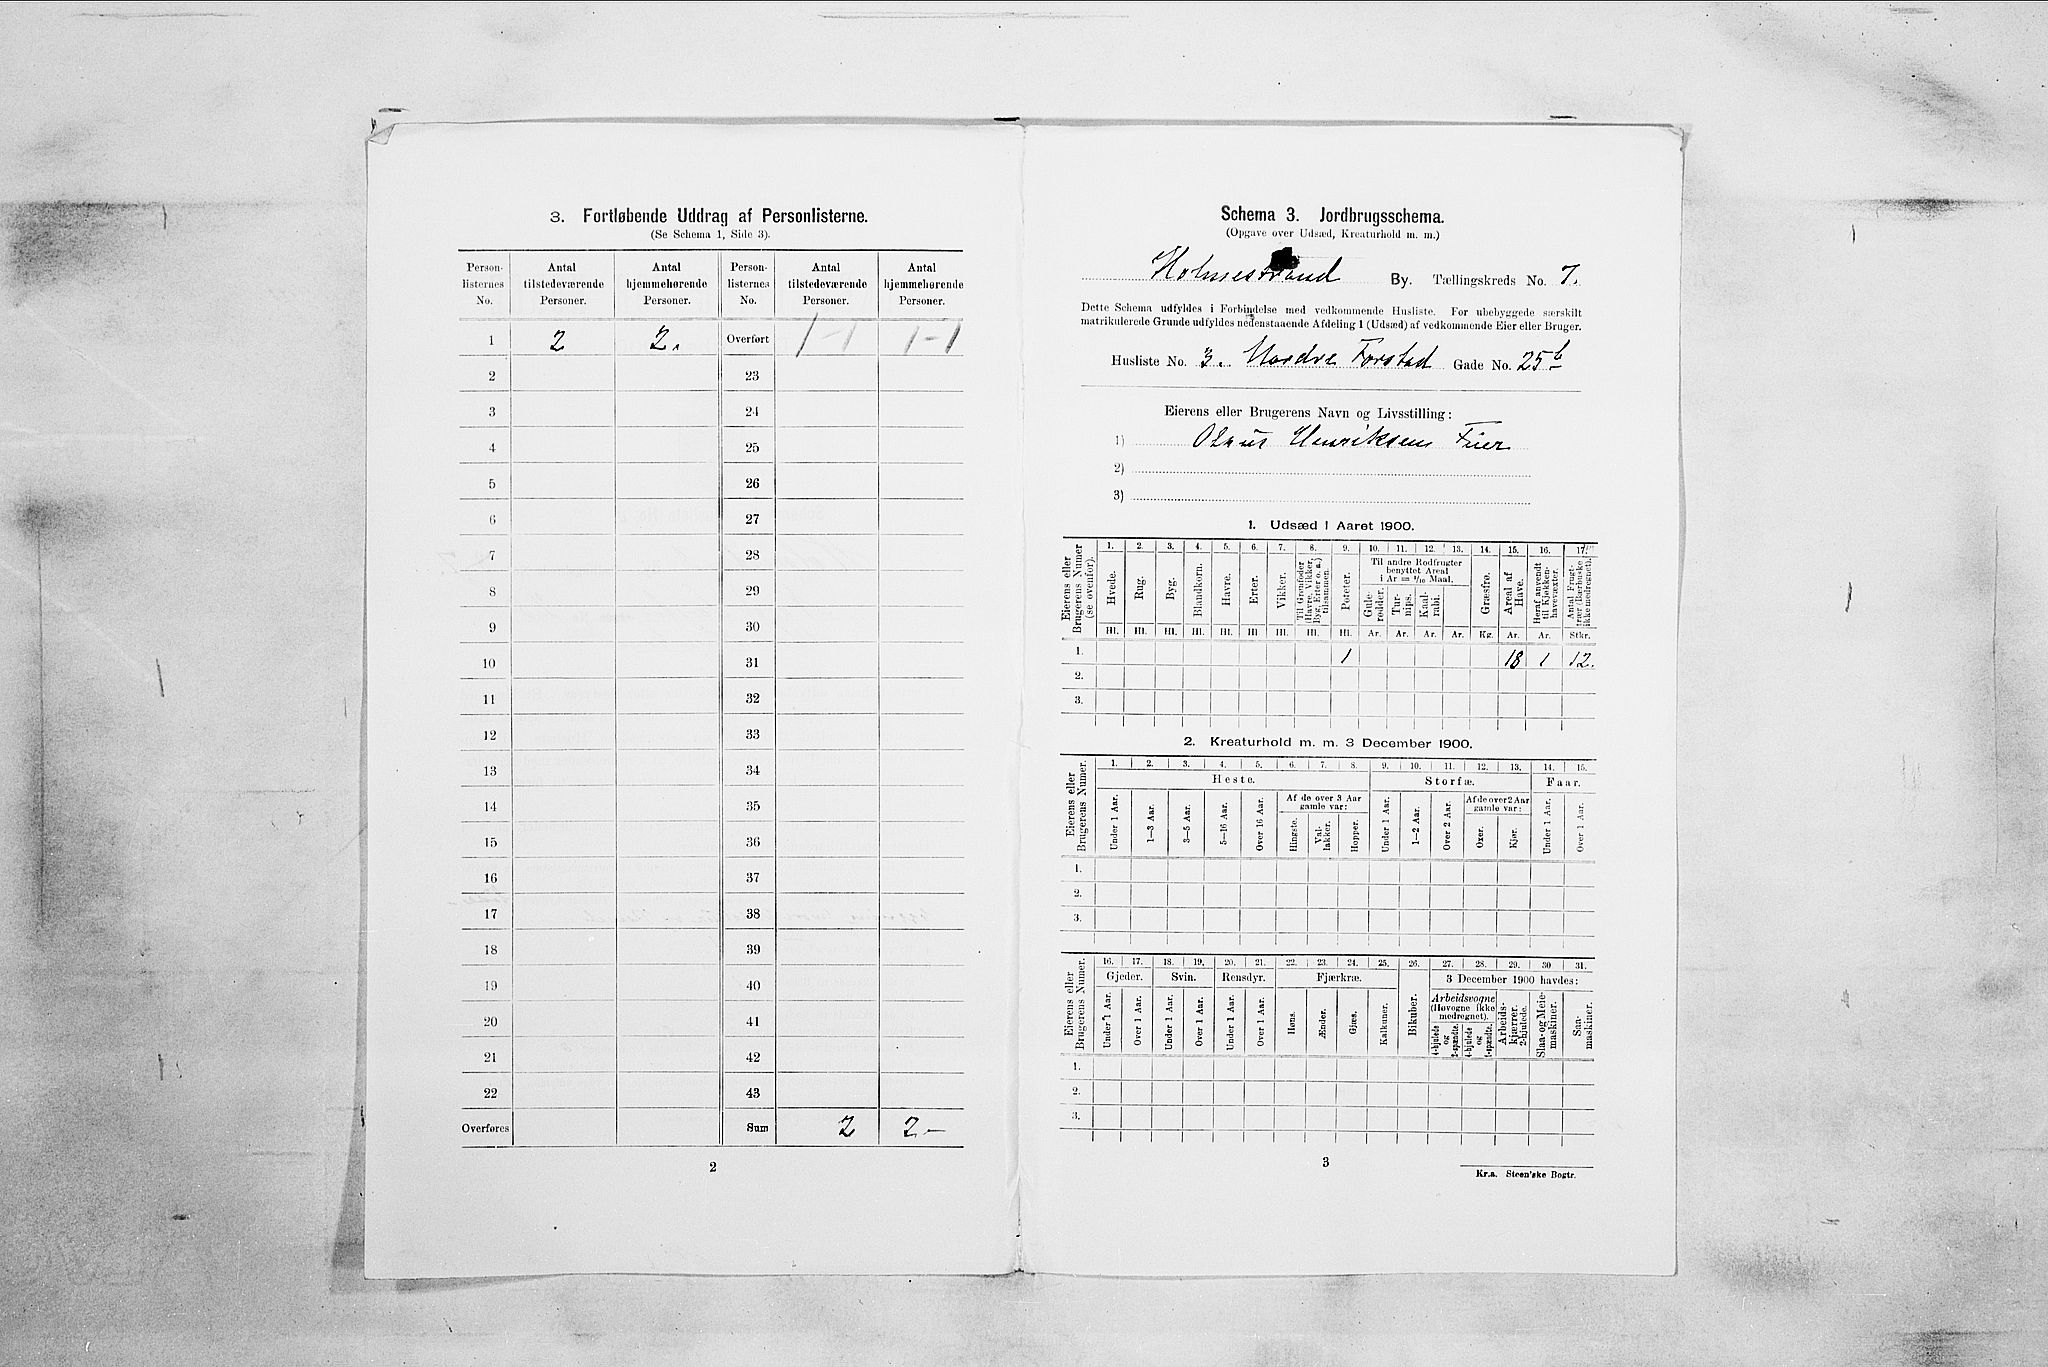 3. Fortløbende Uddrag af Personlisterne.
(Se Schema 1, Side 3).
Person-listernes No. | Antal tilstedeværende Personer. | Antal hjemmehørende Personer. | Person-listernes No. | Antal tilstedeværende Personer. | Antal hjemmehørende Personer.
1 | 2 | 2. | Overført | 1-1 | 1-1
2 23
3 24
4 25
5 26
6 27
7 28
8 29
9 30
10 31
11 32
12 33
13 34
14 35
15 36
16 37
17 38
18 39
19 40
20 41
21 42
22 43
Overføres | Sum | 2 | 2-
2
Schema 3. Jordbrugsschema.
(Opgave over Udsæd, Kreaturhold m. m.)
Holmestrand By. Tællingskreds No. 7.
Dette Schema udfyldes i Forbindelse med vedkommende Husliste. For ubebyggede særskilt
matrikulerede Grunde udfyldes nedenstaaende Afdeling 1 (Udsæd) af vedkommende Eier eller Bruger.
Husliste No. 3. Nordre Forstad Gade No. 25b
Eierens eller Brugerens Navn og Livsstilling:
1) Olaus Henriksen Feier
2)
3)
1. Udsæd i Aaret 1900.
Eierens eller Brugerens Numer (se ovenfor).
1. 2. 3. 4. 5. 6. 7. 8. 9. 10. 11. 12. 13. 14. 15. 16. 17.
Hvede. Rug. Byg. Blandkorn. Havre. Erter. Vikker. Til Grønfoder (Havre, Vikker, Byg, Erter o. a.) tilsammen. Poteter.
Til andre Rodfrugter benyttet Areal i Ar = 1/10 Maal.
Gule-rødder. Tur-nips. Kaal-rabi.
Græsfrø. Areal af Have. Heraf anvendt til Kjøkken-havevæxter. Antal Frugt-trær (Bærbuske ikke medregnet).
Hl. Hl. Hl. Hl. Hl. Hl Hl. Hl. Hl. Ar. Ar. Ar. Ar. Kg. Ar. Ar. Stkr.
1. 1 18 1 12.
2.
3.
2. Kreaturhold m. m. 3 December 1900.
Eierens eller Brugerens Numer.
1. 2. 3. 4. 5. 6. 7. 8. 9. 10. 11. 12. 13. 14. 15.
Heste. Storfæ. Faar.
Under 1 Aar. 1—3 Aar. 3—5 Aar. 5—16 Aar. Over 16 Aar.
Af de over 3 Aar gamle var:
Hingste. Val-lakker. Hopper.
Under 1 Aar. 1—2 Aar. Over 2 Aar.
Af de over 2 Aar gamle var:
Oxer. Kjør.
Under 1 Aar. Over 1 Aar.
1.
2.
3.
Eierens eller Brugerens Numer.
16. 17. 18. 19. 20. 21. 22. 23. 24. 25. 26. 27. 28. 29. 30 31.
Gjeder. Svin. Rensdyr. Fjærkræ. Bikuber. 3 December 1900 havdes:
Under 1 Aar. Over 1 Aar. Under 1 Aar. Over 1 Aar. Under 1 Aar. Over 1 Aar. Høns. Ænder. Gjæs. Kalkuner.
Arbeidsvogne (Høvogne ikke medregnet).
4-hjulede og 2-spændte. 4-hjulede og 1-spændte. Arbeids-kjærrer, 2-hjulede. Slaa- og Meie-maskiner. Saa-maskiner.
1.
2.
3.
3
Kr.a. Steen'ske Bogtr.